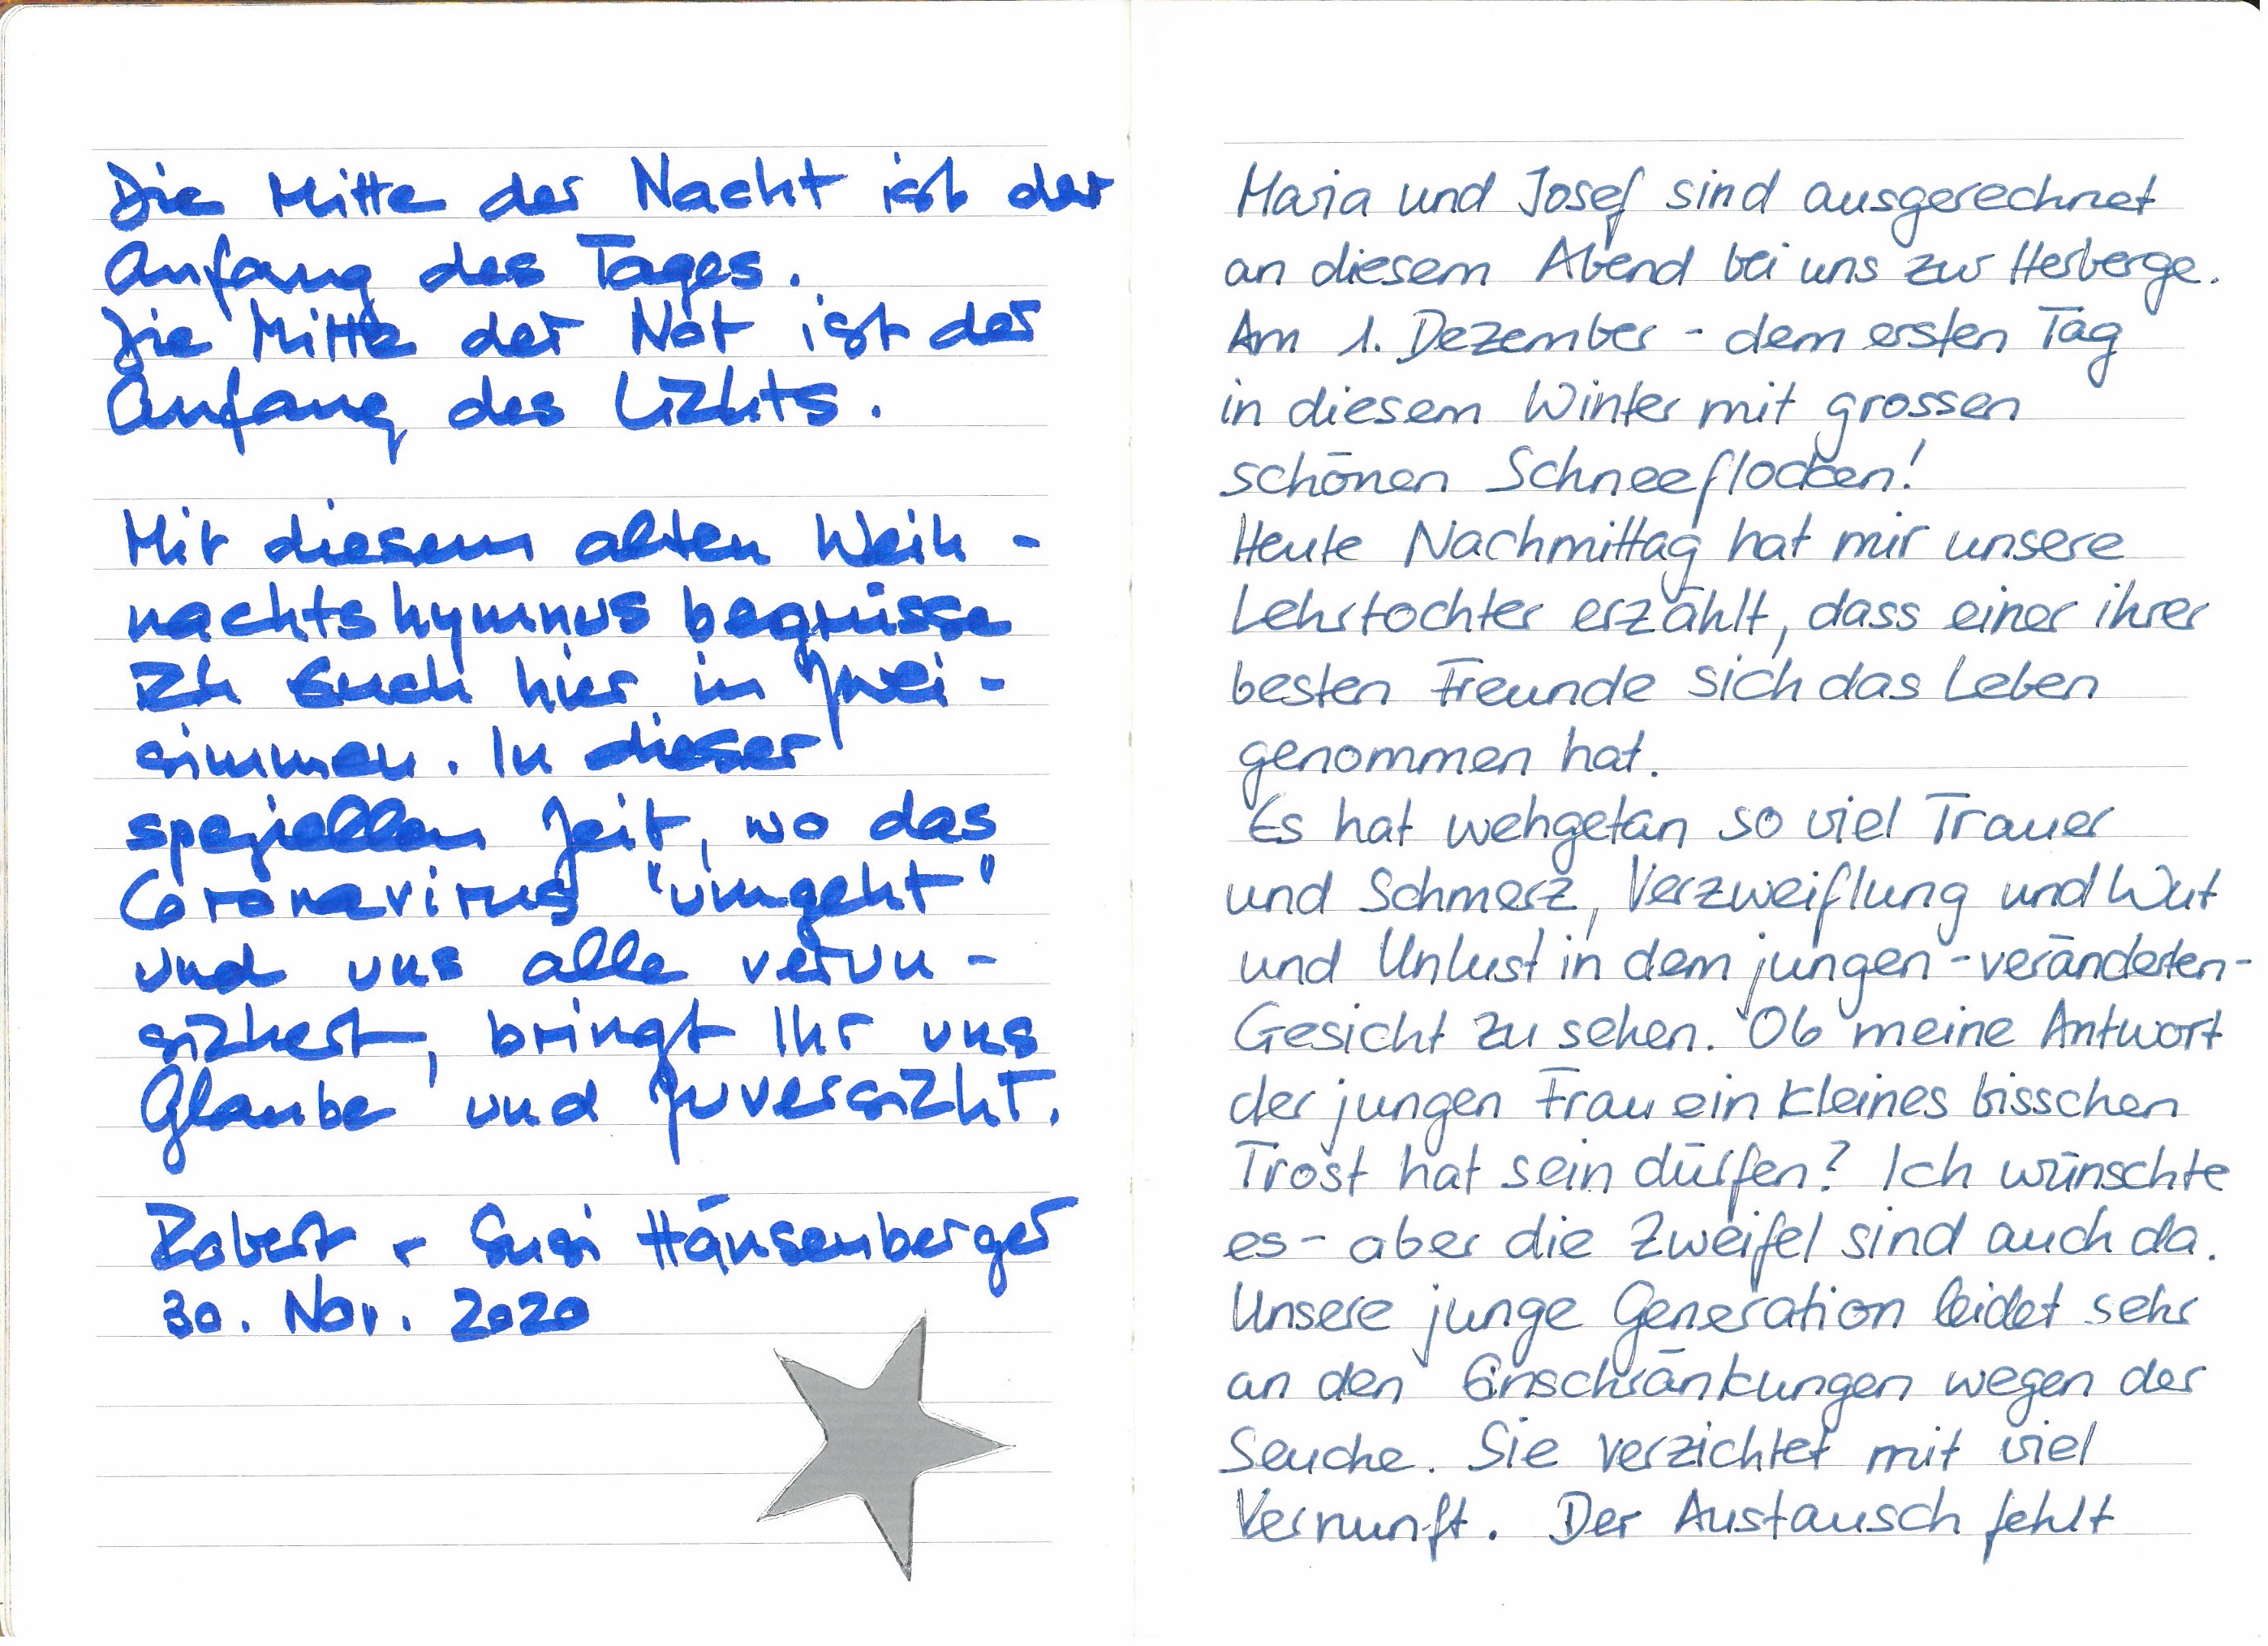 Die Mitte der Nacht ist der
Anfang des Tages.
Die Mitte der Not ist der
Anfang des Lichts.
Mit diesem alten Weih-
nachtshymnus begrüsse
ich Euch hier in Zwei-
simmen. In dieser
speziellen Zeit, wo das
Coronavirus "umgeht"
und uns alle verun-
sichert, bringt Ihr uns
Glaube und Zuversicht.
Robert + Susi Hänsenberger
30. Nov. 2020
Maria und Josef sind ausgerechnet
an diesem Abend bei uns zur Herberge.
Am 1. Dezember - dem ersten Tag
in diesem Winter mit grossen
schönen Schneeflocken!
Heute Nachmittag hat mir unsere
Lehrtochter erzählt, dass einer ihrer
besten Freunde sich das Leben
genommen hat.
Es hat wehgetan so viel Trauer
und Schmerz, Verzweiflung und Wut
und Unlust in dem jungen - veränderten -
Gesicht zu sehen. Ob meine Antwort
der jungen Frau ein kleines bisschen
Trost hat sein dürfen? Ich wünschte
es - aber die Zweifel sind auch da.
Unsere junge Generation leidet sehr
an den Einschränkungen wegen der
Seuche. Sie verzichtet mit viel
Vernunft. Der Austausch fehlt